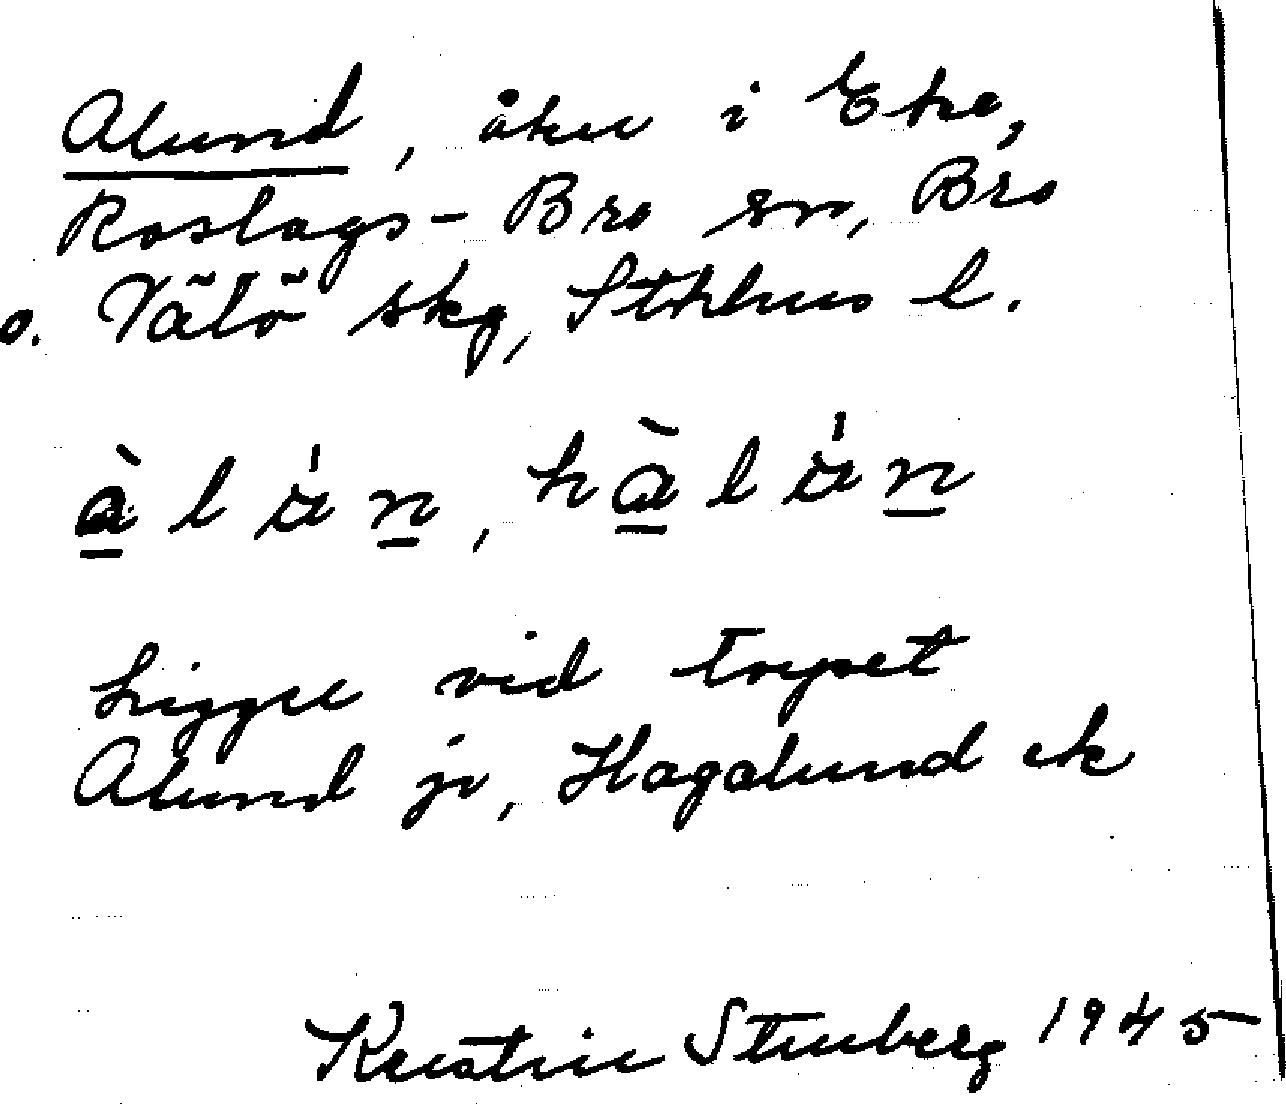 Alund, åker i Eke,
Roslags-Bro sn, Bro
o. Vätö skg, Sthlms l.
à l ù n, h à l ù n
Ligger vid torpet
Alund jr, Hagalund ek
Kerstin Stenberg 1945